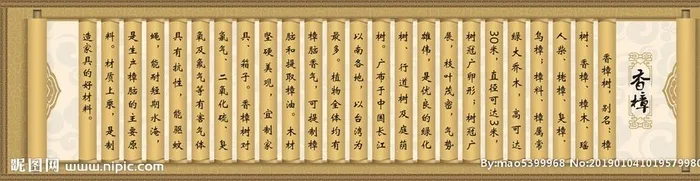 香樟
香樟树，别名：樟
树、香樟、樟木、瑶
人柴、栳樟、臭樟、
乌樟；樟科、樟属常
绿大乔木，高可达
30米，直径可达3米，
树冠广卵形；树冠广
展，枝叶茂密，气势
雄伟，是优良的绿化
树、行道树及庭荫
树。广布于中国长江
以南各地，以台湾为
最多。植物全体均有
樟脑香气，可提制樟
脑和提取樟油。木材
坚硬美观，宜制家
具、箱子。香樟树对
氯气、二氧化硫、臭
氧及氟气等有害气体
具有抗性，能驱蚊
蝇，能耐短期水淹，
是生产樟脑的主要原
料。材质上乘，是制
造家具的好材料。
昵图网 www.nipic.com
By:mao5399968 No:201901041019579980